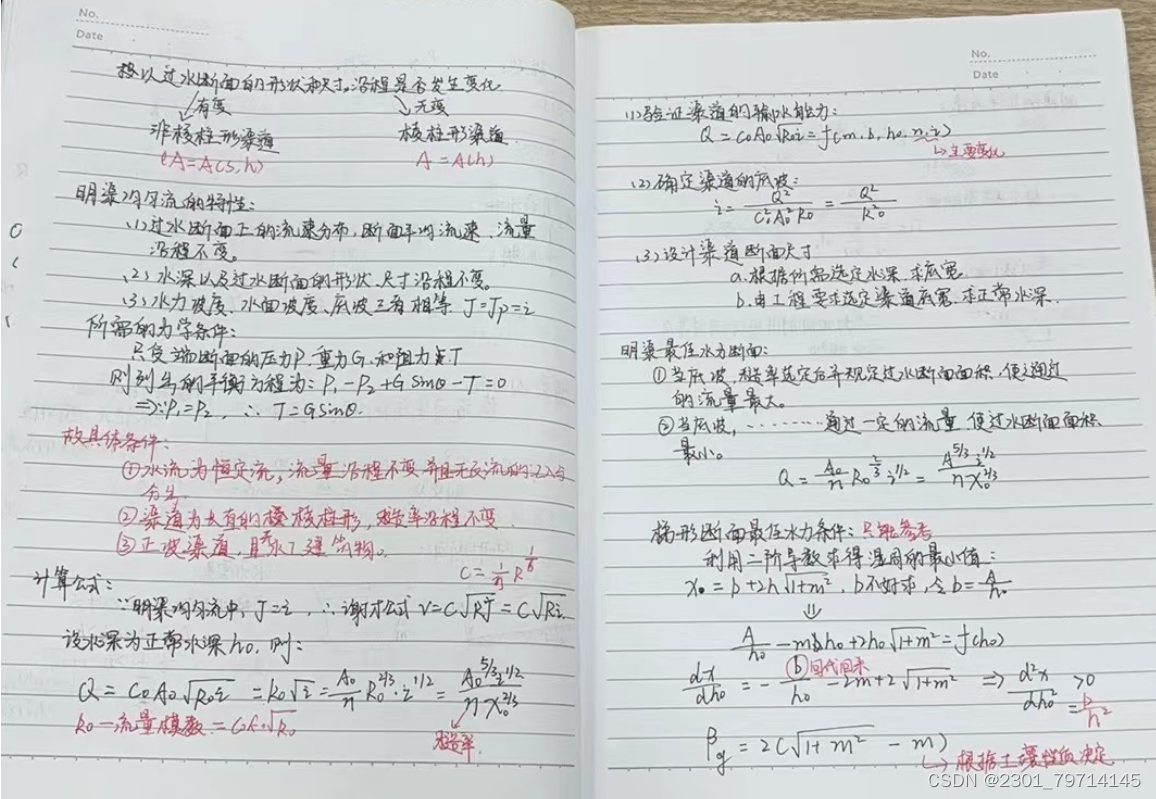 No.
Date
按以过水断面的形状和尺寸,沿程是否发生变化
有变 无变
非棱柱形渠道 棱柱形渠道
(A=A(s,h) A=A(h)
明渠均匀流的特性:
(1)过水断面上的流速分布,断面平均流速,流量
沿程不变。
(2)水深以及过水断面的形状、尺寸沿程不变。
(3)水力坡度、水面坡度、底坡三者相等 J=Jp=i
所需的力学条件:
只受端断面的压力P,重力G,和阻力 T
则列出的平衡方程为:P₁-P₂+G sinθ-T=0
⇒∵P₁=P₂, ∴T=G sinθ.
故具体条件:
①水流为恒定流,流量沿程不变并且无支流的汇入与
分出.
②渠道为长直的 棱柱形,糙率沿程不变
③正坡渠道,且无水工建筑物。
C=1/n R^1/6
计算公式:
∵明渠均匀流中,J=i,∴谢才公式 v=C√RJ=C√Ri
设水深为正常水深h₀.则:
Q=C₀A₀√R₀i=k₀√i=A₀/n R₀^2/3·i^1/2=A₀^5/3 i^1/2/n χ₀^2/3
k₀—流量模数=C₀A₀√R₀ 糙率.
No.
Date
(1)验证渠道的输水能力:
Q=C₀A₀√R₀i=f(m,b,h₀,n,i)
主要变化
(2)确定渠道的底坡:
i=Q²/C₀²A₀²R₀=Q²/K₀²
(3)设计渠道断面尺寸
a.根据所需选定水深,求底宽
b.由工程要求选定渠道底宽,求正常水深.
明渠最佳水力断面:
①当底坡,糙率选定后并规定过水断面面积,使通过
的流量最大。
②当底坡,………通过一定的流量,使过水断面面积
最小。
Q=A₀/n R₀^2/3 i^1/2=A^5/3 i^1/2/n χ₀^2/3
梯形断面最佳水力条件:只能参考
利用二阶导数求得湿周的最小值:
χ₀=b+2h√1+m²,b不好求,令b=A/h₀
⇓
A/h₀-mh₀+2h₀√1+m²=f(h₀)
dχ/dh₀=-b/h₀-2m+2√1+m² ⇒ d²χ/dh₀²>0
回代回来 =b/h²
βg=2(√1+m²-m)
根据土壤性质决定
CSDN @2301_79714145